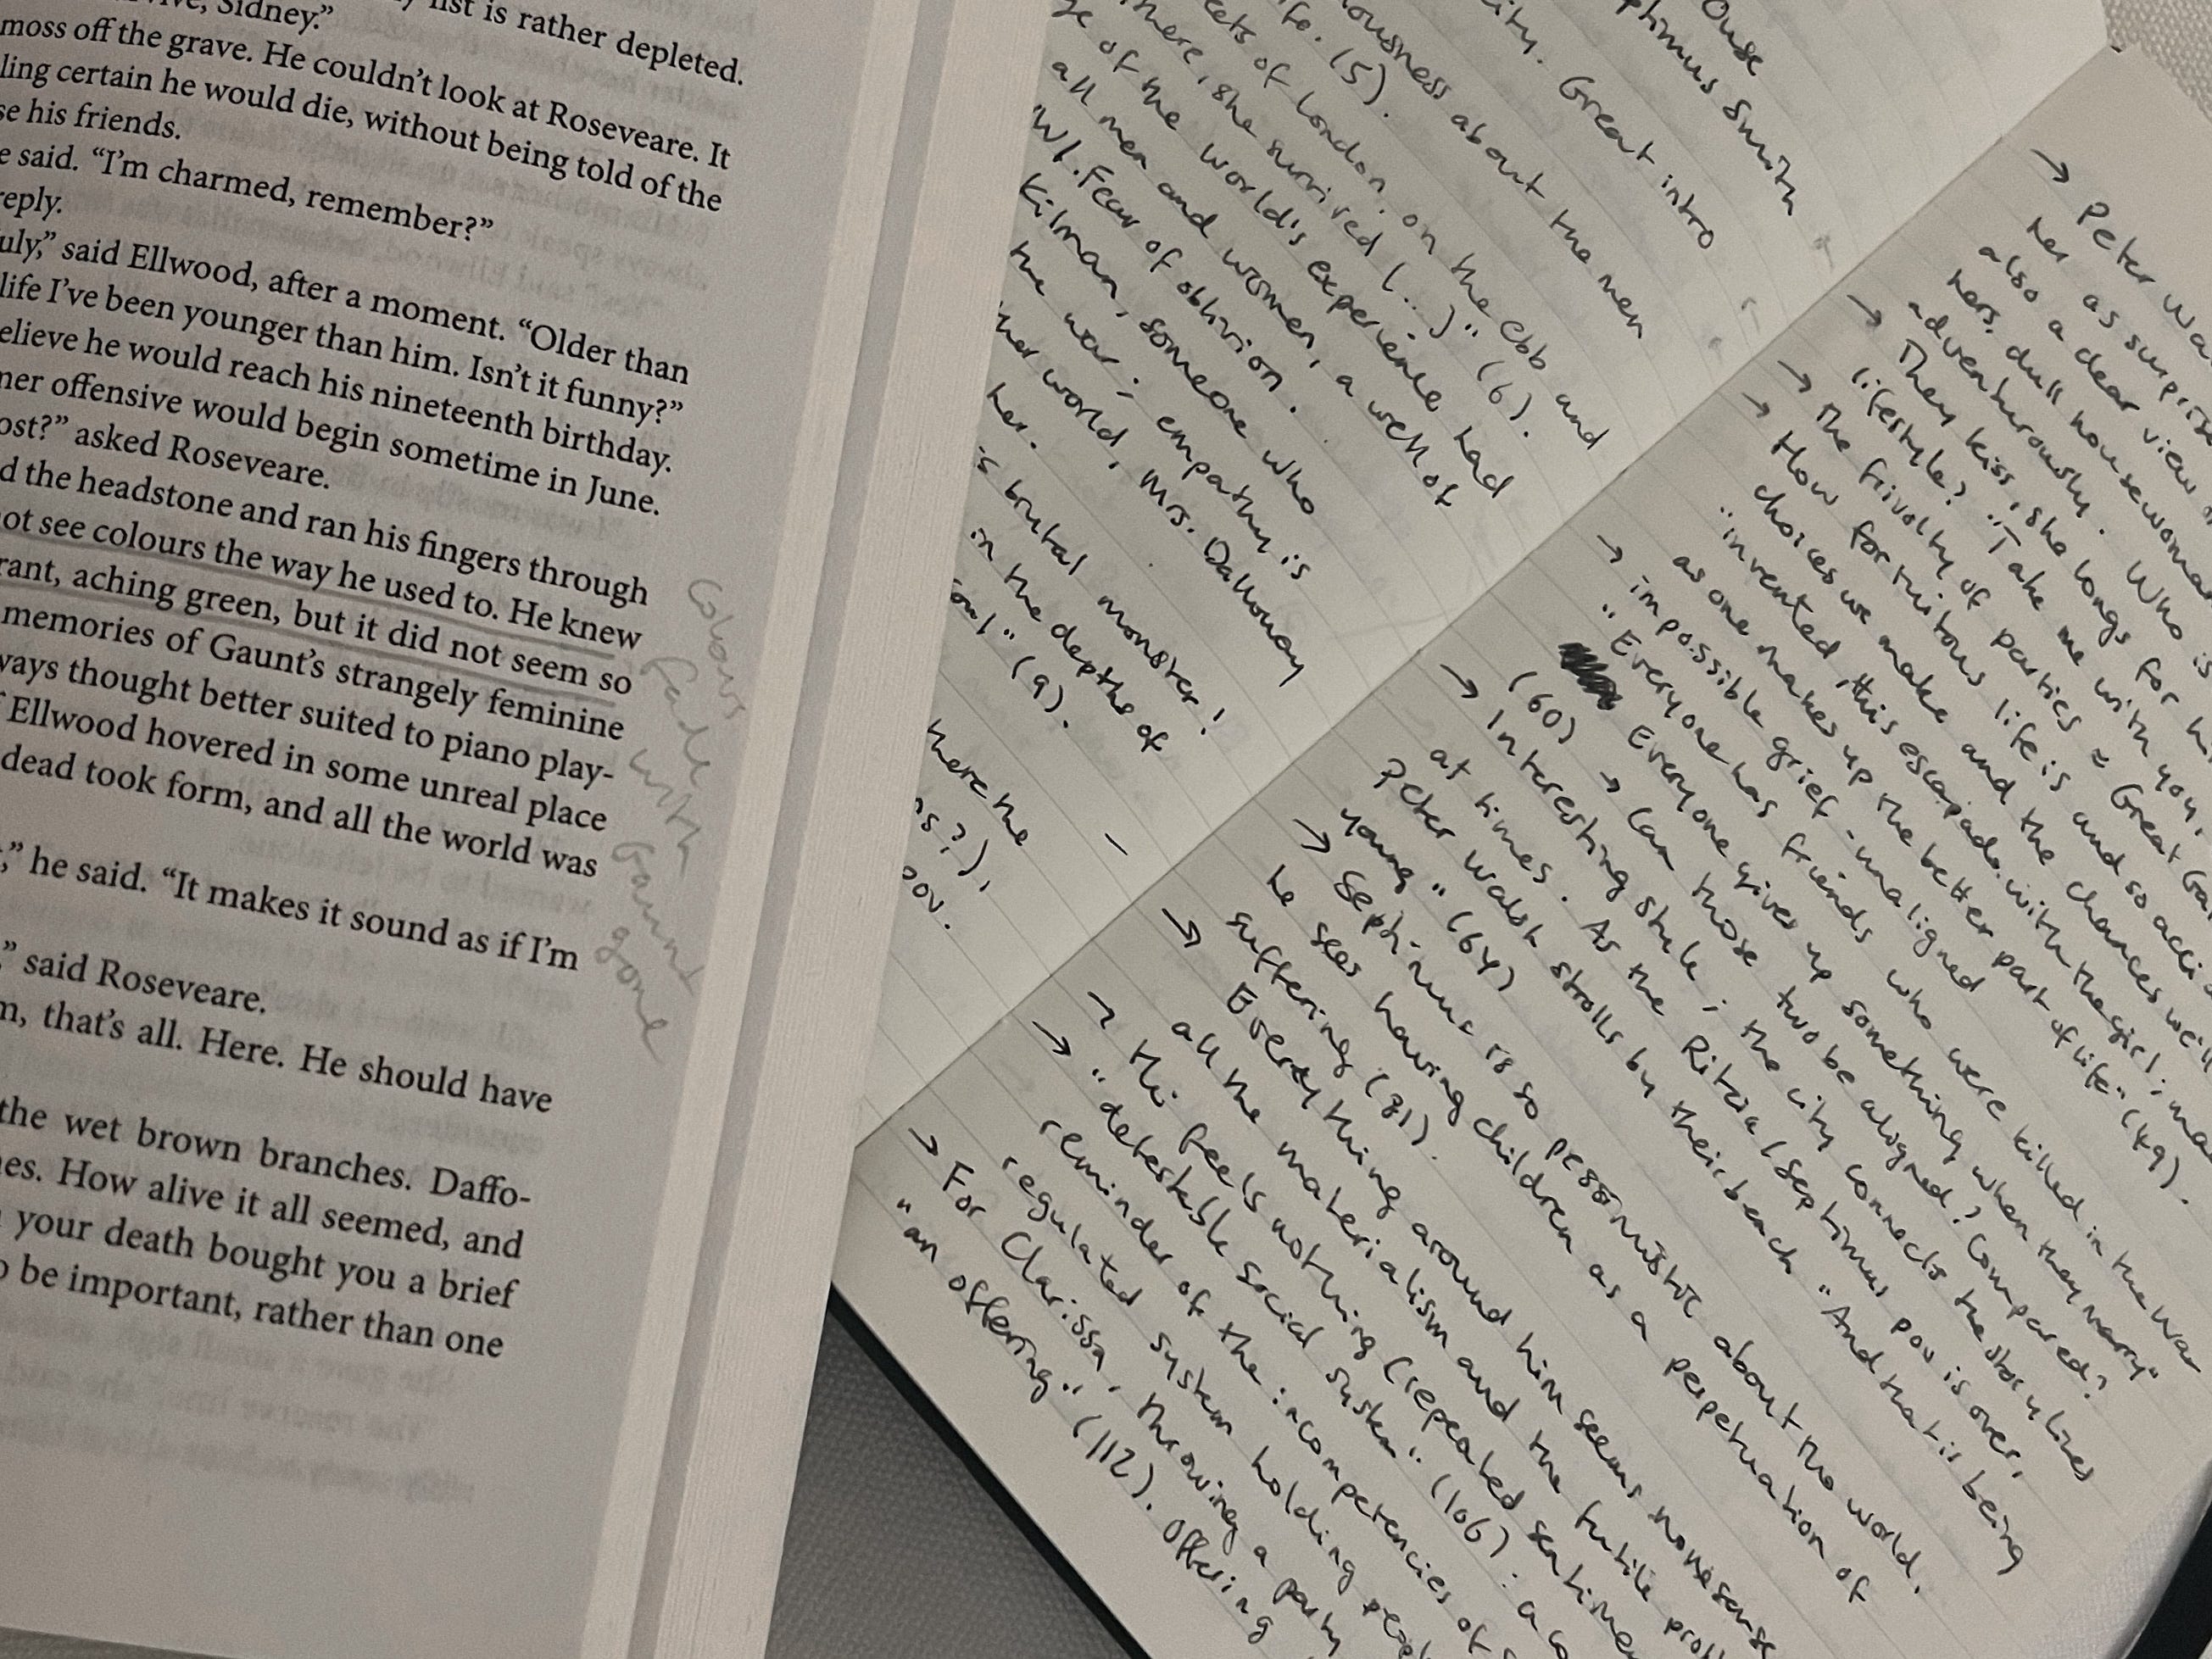 Sidney.”
list is rather depleted.
moss off the grave. He couldn’t look at Roseveare. It
ling certain he would die, without being told of the
se his friends.
e said. “I’m charmed, remember?”
reply.
uly,” said Ellwood, after a moment. “Older than
life I’ve been younger than him. Isn’t it funny?”
elieve he would reach his nineteenth birthday.
mer offensive would begin sometime in June.
ost?” asked Roseveare.
d the headstone and ran his fingers through
not see colours the way he used to. He knew
rant, aching green, but it did not seem so
memories of Gaunt’s strangely feminine
ways thought better suited to piano play-
Ellwood hovered in some unreal place
dead took form, and all the world was
,” he said. “It makes it sound as if I’m
,” said Roseveare.
m, that’s all. Here. He should have
the wet brown branches. Daffo-
es. How alive it all seemed, and
your death bought you a brief
o be important, rather than one
Colours
fade
with
Gaunt
gone
Ouse
ptimus Smith
city. Great intro
ousness about the men
ife. (5).
ets of London, on the ebb and
here, she survived (...)" (6).
ge of the world's experience had
all men and women, a well of
"W1. Fear of oblivion.
Kilman, someone who
the war; empathy is
her world, Mrs. Dalloway
her.
is brutal monster!
in the depths of
soul" (9).
here the
ns?),
pov.
→ Peter Wa
her as surprise
also a dear view
hers. dull housewoman
adventurously. Who is
→ They kiss, she longs for hi
lifestyle? "Take me with you,
→ The frivolty of parties = Great Ga
→ How fortuitous life is and so acci
choices we make and the chances we'll
"invented, this escapade with the girl; ma
as one makes up the better part of life" (49).
→ impossible grief - maligned
"Everyone has friends who were killed in the War
Everyone gives up something when they marry"
(60) → Can those two be aligned? Compared?
→ Interesting style; the city connects the storylines
at times. As the Ritzia/Septimus pov is over,
Peter Walsh strolls by their beach "And that is being
young" (64)
→ Septimus is so pessimistic about the world.
he sees having children as a perpetuation of
suffering (81).
→ Everything around him seems nonsense
all the materialism and the futile prob
→ He feels nothing (repeated sentimen
→ "detestable social system" (106): a co
reminder of the incompetencies of
regulated system holding peopl
→ For Clarissa, throwing a party
"an offering" (112). Offering